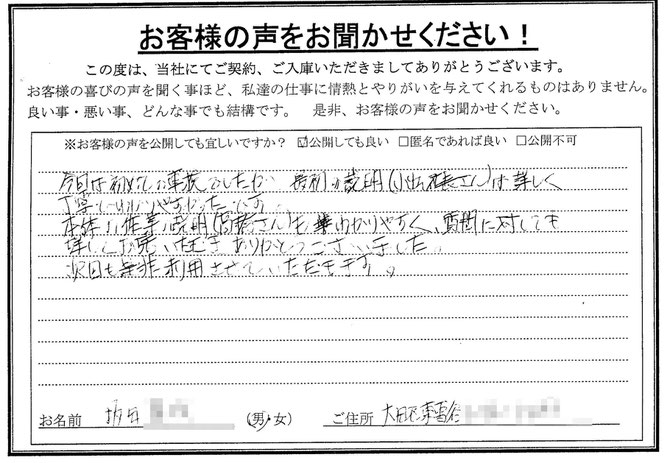 お客様の声をお聞かせください！
この度は、当社にてご契約、ご入庫いただきましてありがとうございます。
お客様の喜びの声を聞く事ほど、私達の仕事に情熱とやりがいを与えてくれるものはありません。
良い事・悪い事、どんな事でも結構です。 是非、お客様の声をお聞かせください。
※お客様の声を公開しても宜しいですか？ ☑公開しても良い □匿名であれば良い □公開不可
今回は初めての車検でしたが 最初の説明(小出店長さん)は詳しく
丁寧にわかりやすかったです。
本体の作業の説明(高橋さん)も わかりやすく、質問に対しても
詳しくお答えいただき ありがとうございました。
次回も是非利用させていただきます。
お名前 坂田 (男・女) ご住所 大田区東雪谷